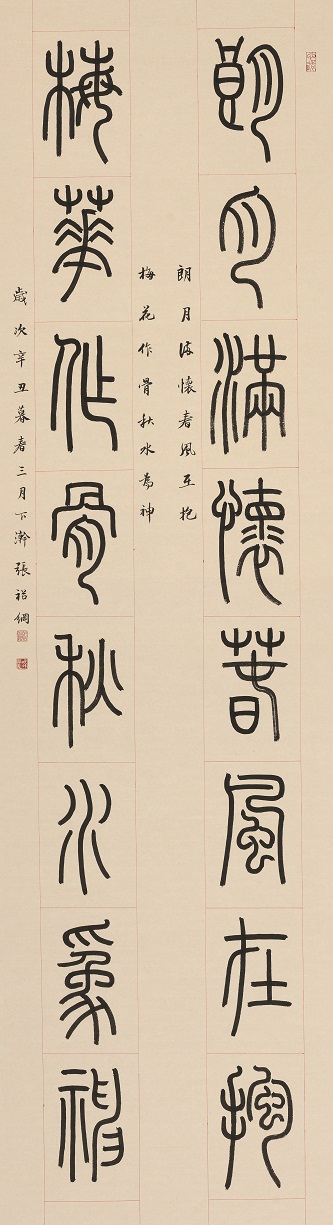 朗月滿懷春風在抱
朗月滿懷春風在抱
梅花作骨秋水為神
梅華作骨秋水為神
歲次辛丑暮春三月下澣張裕綱